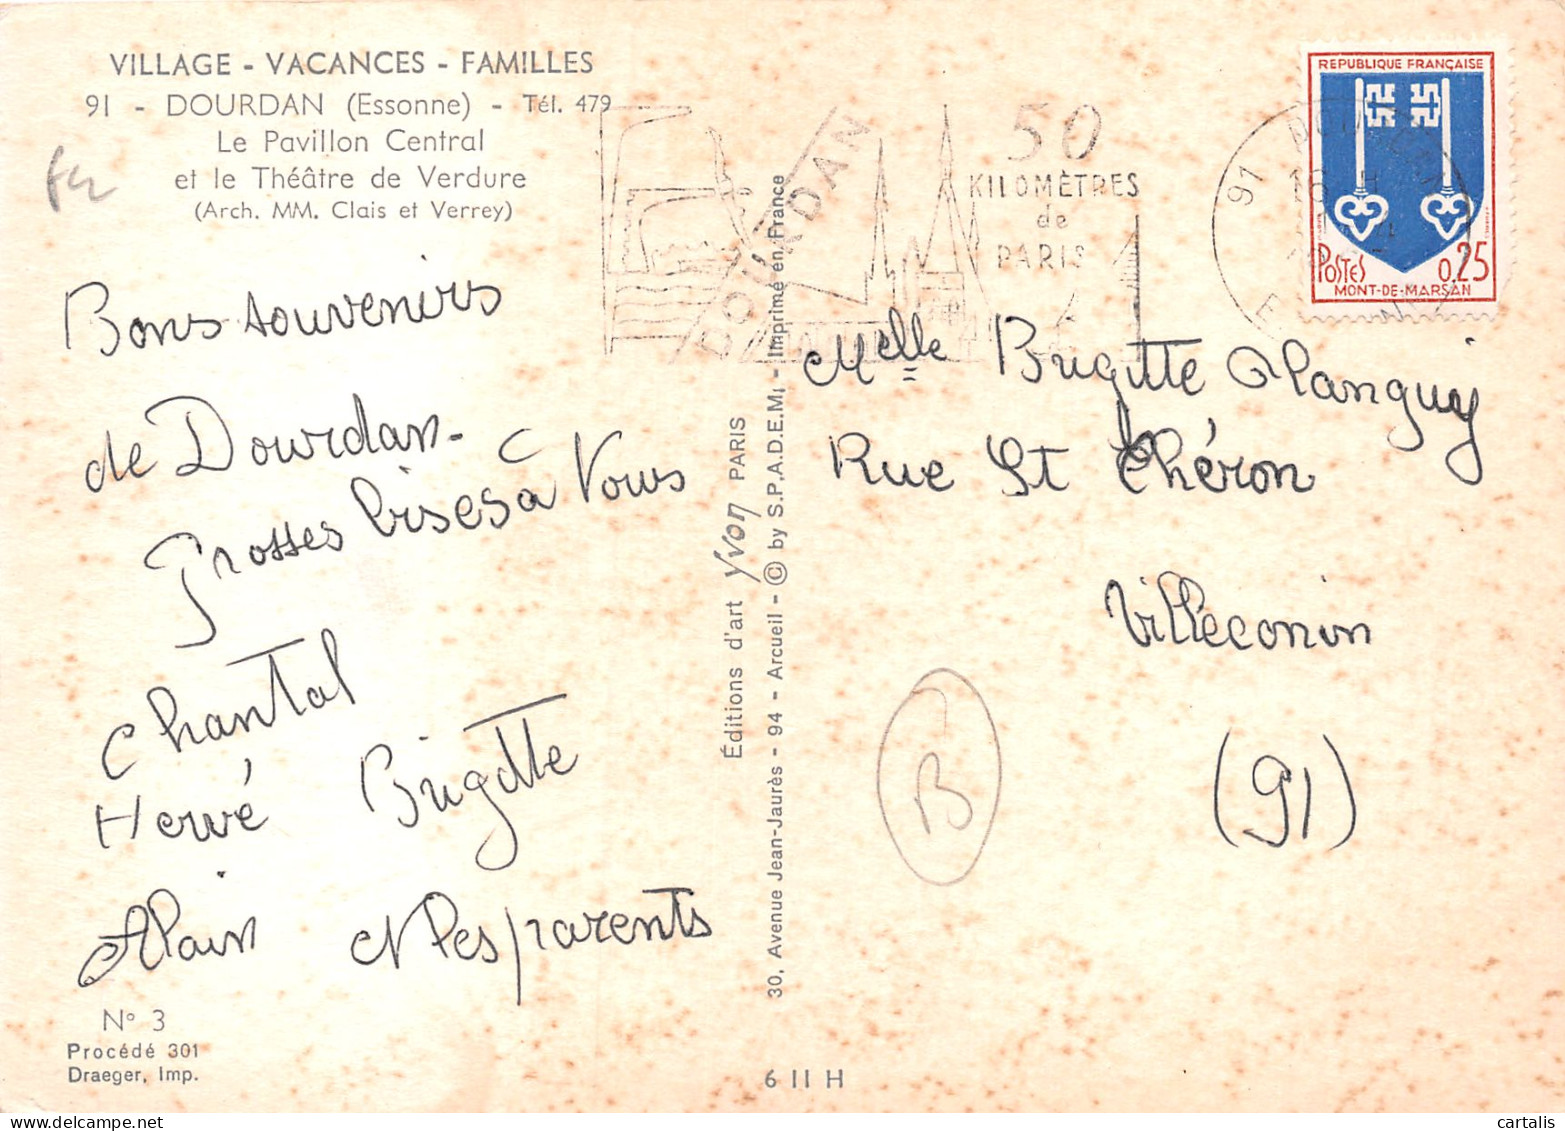 VILLAGE - VACANCES - FAMILLES
91 - DOURDAN (Essonne) - Tél. 479
Le Pavillon Central
et le Théâtre de Verdure
(Arch. MM. Clais et Verrey)
Bons souvenirs
de Dourdan.
Grosses bises à Vous
Chantal
Hervé Brigitte
Alain et les parents
N° 3
Procédé 301
Draeger, Imp.
Éditions d'art Yvon PARIS
30, Avenue Jean-Jaurès - 94 - Arcueil - © by S.P.A.D.E.M. - Imprimé en France
6 II H
DOURDAN
50
KILOMÈTRES
de
PARIS
91
16 H
REPUBLIQUE FRANÇAISE
POSTES 0,25
MONT-DE-MARSAN
Melle Brigitte Olanguy
Rue St Chéron
Villeconin
(91)
B
cartalis